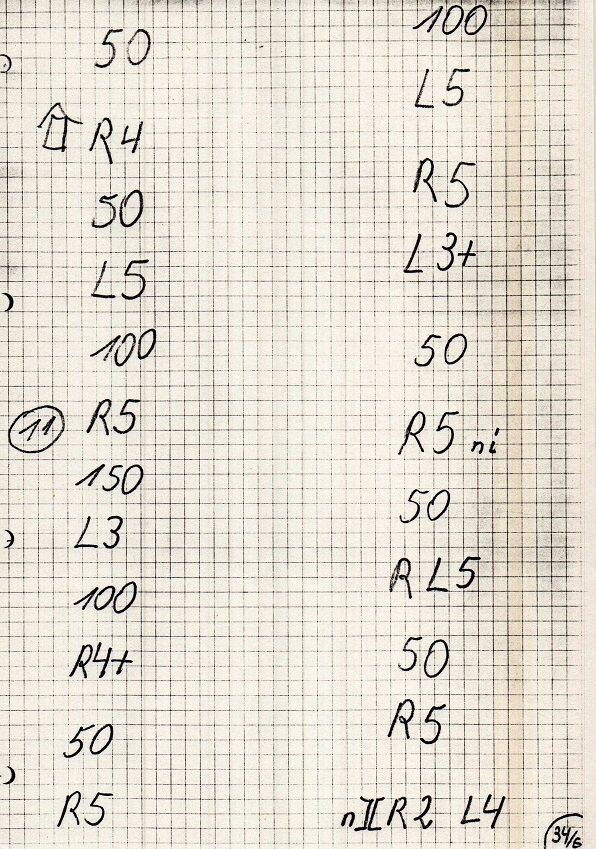 50
R4
50
L5
100
11 R5
150
L3
100
R4+
50
R5
100
L5
R5
L3+
50
R5 ni
50
R L5
50
R5
nII R2 L4
34/6